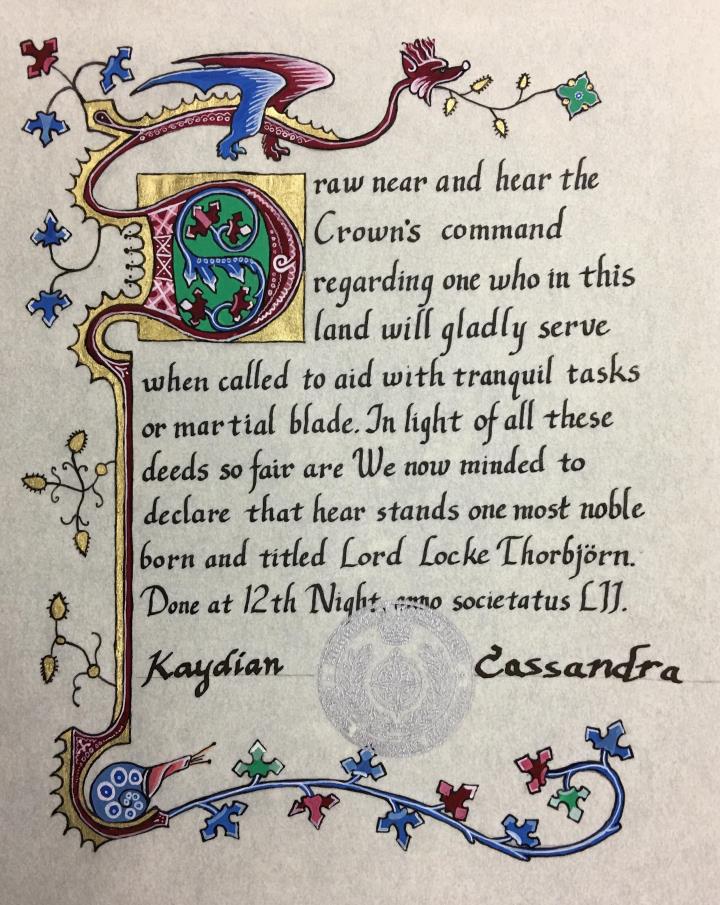 Draw near and hear the
Crown's command
regarding one who in this
land will gladly serve
when called to aid with tranquil tasks
or martial blade. In light of all these
deeds so fair are We now minded to
declare that hear stands one most noble
born and titled Lord Locke Thorbjörn.
Done at 12th Night, anno societatus LII.
Kaydian Cassandra